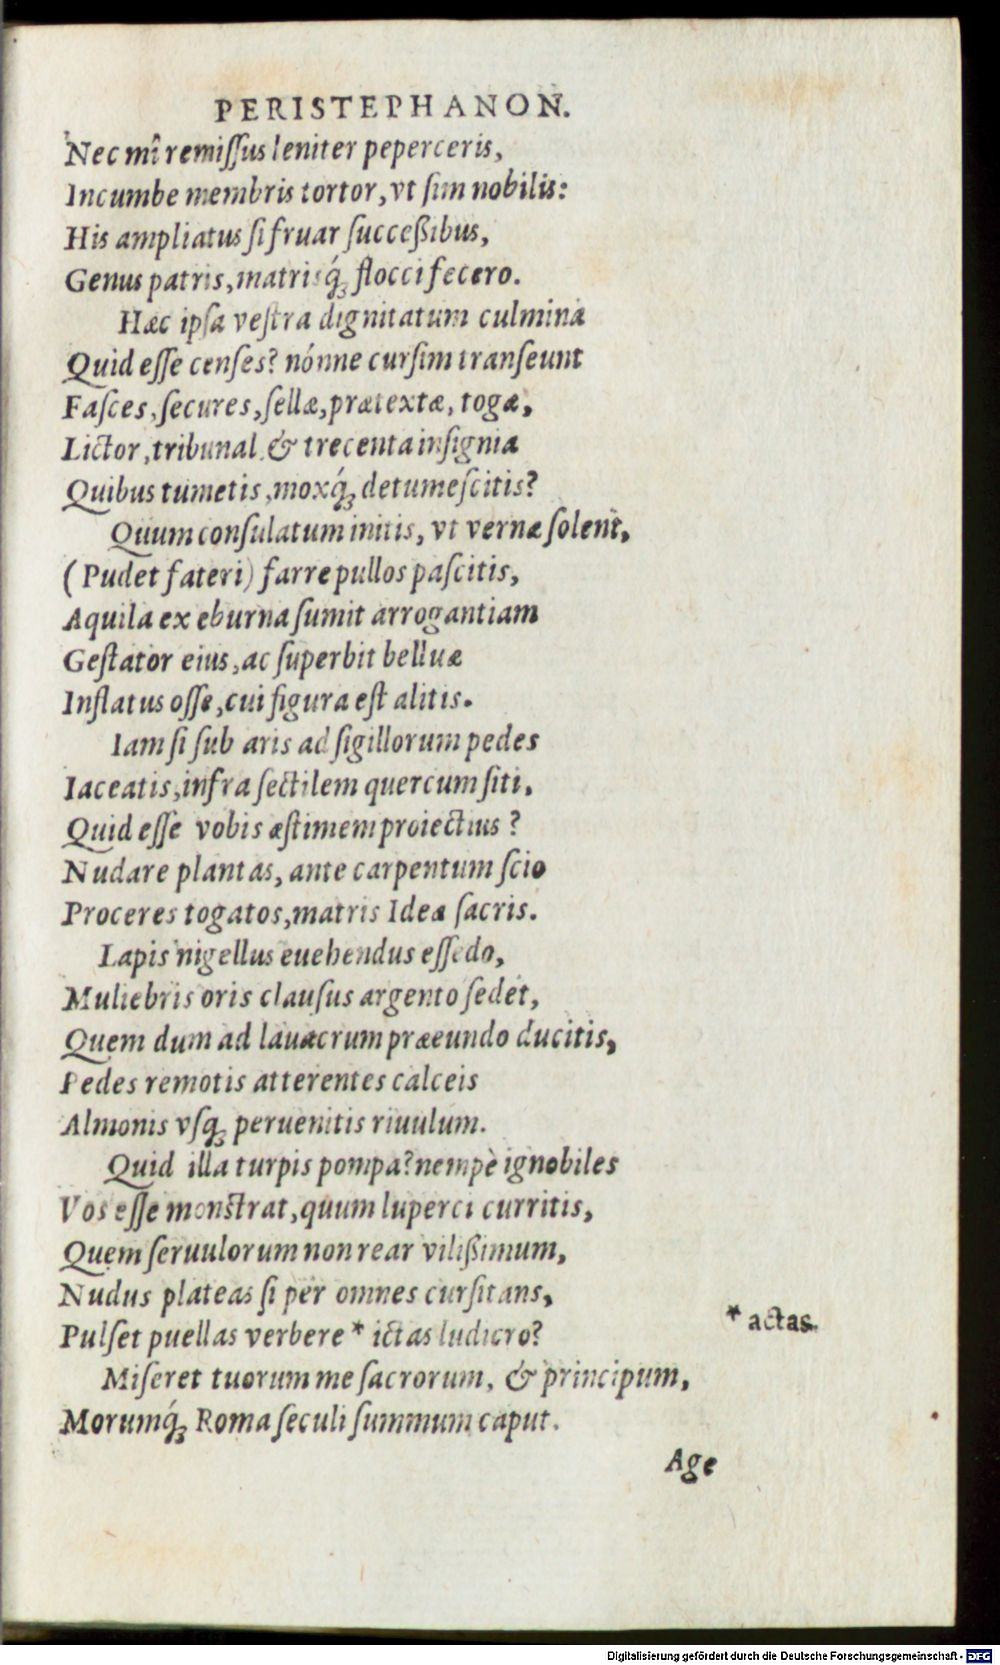 PERISTEPHANON.
Nec mî remiſſus leniter peperceris,
Incumbe membris tortor, vt ſim nobilis:
His ampliatus ſi fruar ſucceßibus,
Genus patris, matrisq́ꝫ flocci fecero.
Hæc ipſa veſtra dignitatum culmina
Quid eſſe cenſes? nónne curſim tranſeunt
Faſces, ſecures, ſellæ, prætextæ, togæ,
Lictor, tribunal, & trecenta inſignia
Quibus tumetis, moxq́ꝫ detumeſcitis?
Quum conſulatum initis, vt vernæ ſolent,
(Pudet fateri) farre pullos paſcitis,
Aquila ex eburna ſumit arrogantiam
Geſtator eius, ac ſuperbit belluæ
Inflatus oſſe, cui figura eſt alitis.
Iam ſi ſub aris ad ſigillorum pedes
Iaceatis, infra ſectilem quercum ſiti,
Quid eſſe vobis æſtimem proiectius?
Nudare plantas, ante carpentum ſcio
Proceres togatos, matris Ideæ ſacris.
Lapis nigellus euehendus eſſedo,
Muliebris oris clauſus argento ſedet,
Quem dum ad lauacrum præeundo ducitis,
Pedes remotis atterentes calceis
Almonis vſqꝫ peruenitis riuulum.
Quid illa turpis pompa? nempè ignobiles
Vos eſſe monſtrat, quum luperci curritis,
Quem ſeruulorum non rear vilißimum,
Nudus plateas ſi per omnes curſitans,
Pulſet puellas verbere * ictas ludicro?
* actas.
Miſeret tuorum me ſacrorum, & principum,
Morumq́ꝫ Roma ſeculi ſummum caput.
Age
Digitalisierung gefördert durch die Deutsche Forschungsgemeinschaft - DFG